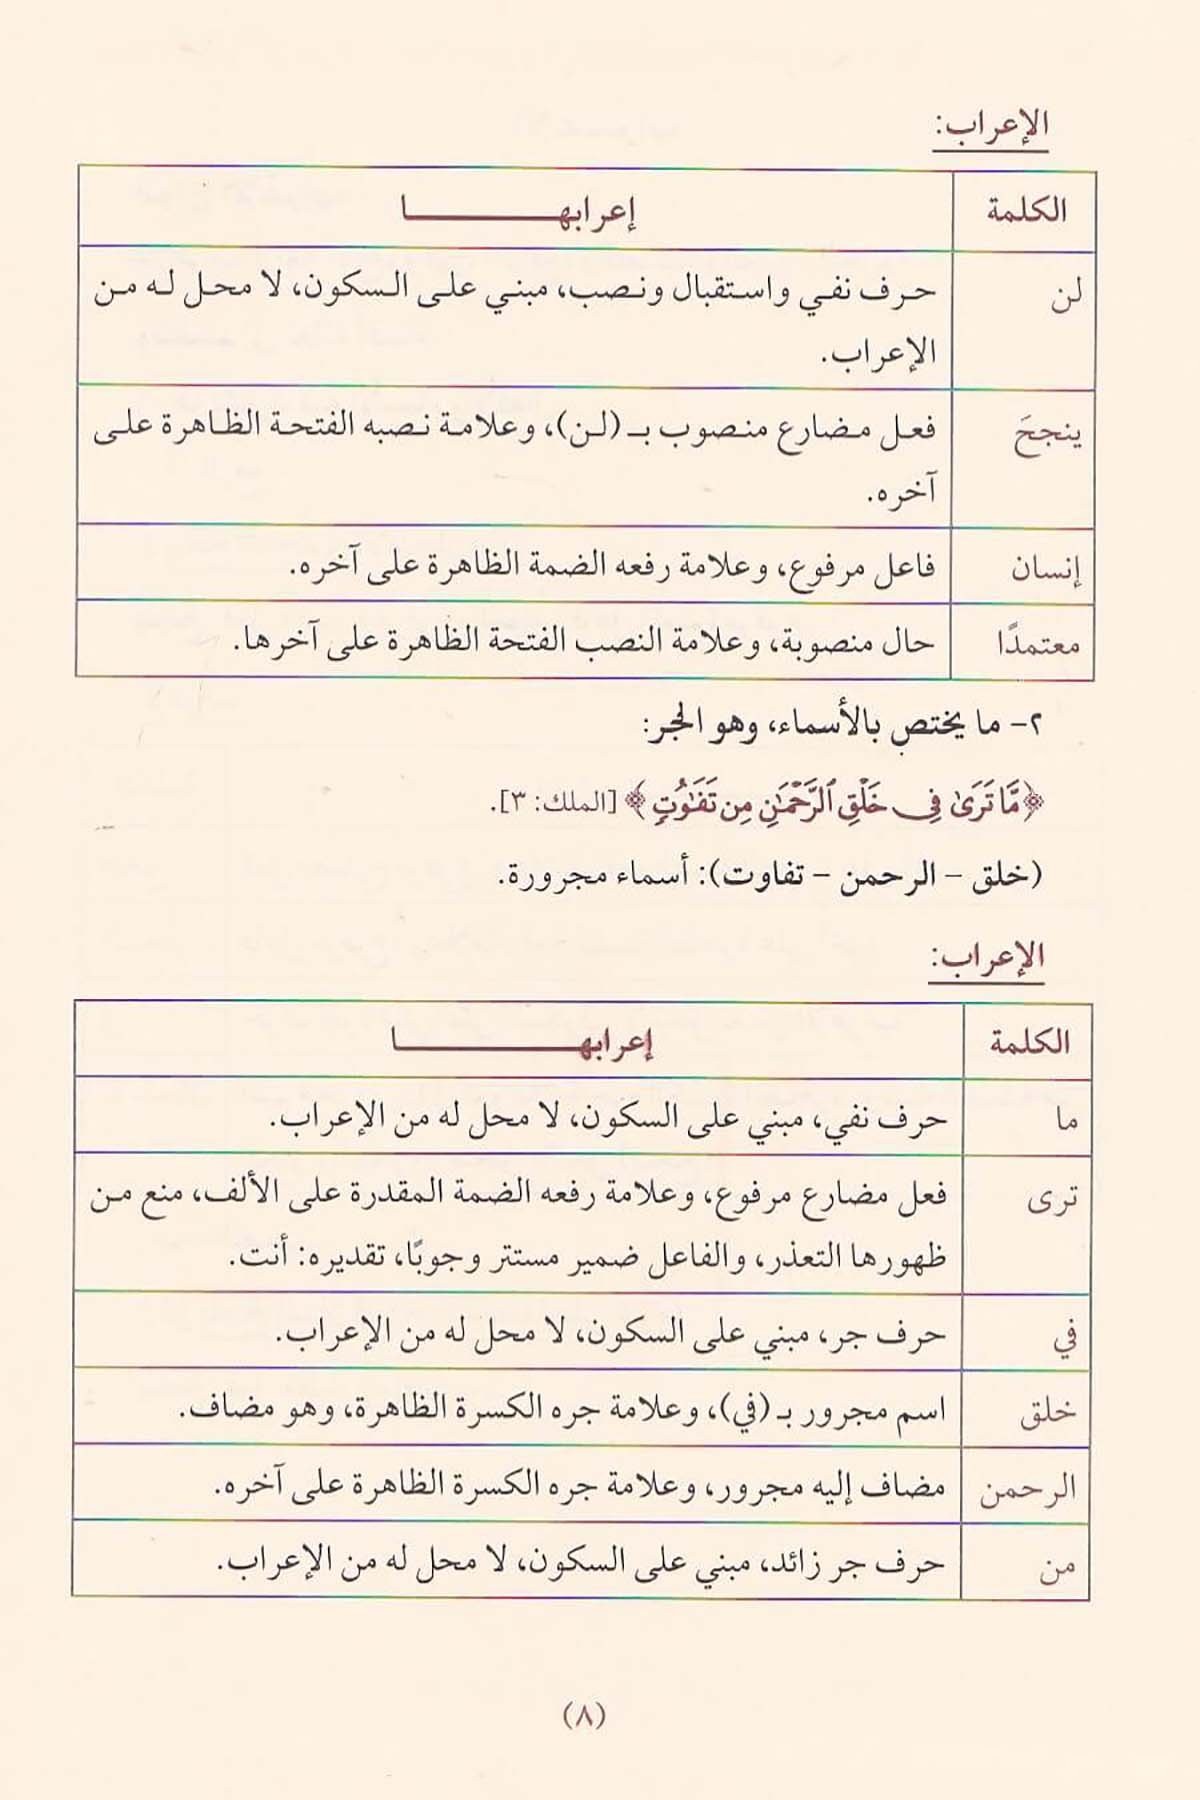 الإعراب:
الكلمة إعرابها
لن حرف نفي واستقبال ونصب، مبني على السكون، لا محل له من
الإعراب.
ينجحَ فعل مضارع منصوب بـ (لن)، وعلامة نصبه الفتحة الظاهرة على
آخره.
إنسان فاعل مرفوع، وعلامة رفعه الضمة الظاهرة على آخره.
معتمدًا حال منصوبة، وعلامة النصب الفتحة الظاهرة على آخرها.
٢- ما يختص بالأسماء، وهو الجر:
﴿مَّا تَرَىٰ فِي خَلْقِ ٱلرَّحْمَٰنِ مِن تَفَٰوُتٍ﴾ [الملك: ٣].
(خلق - الرحمن - تفاوت): أسماء مجرورة.
الإعراب:
الكلمة إعرابها
ما حرف نفي، مبني على السكون، لا محل له من الإعراب.
ترى فعل مضارع مرفوع، وعلامة رفعه الضمة المقدرة على الألف، منع من
ظهورها التعذر، والفاعل ضمير مستتر وجوبًا، تقديره: أنت.
في حرف جر، مبني على السكون، لا محل له من الإعراب.
خلق اسم مجرور بـ (في)، وعلامة جره الكسرة الظاهرة، وهو مضاف.
الرحمن مضاف إليه مجرور، وعلامة جره الكسرة الظاهرة على آخره.
من حرف جر زائد، مبني على السكون، لا محل له من الإعراب.
(٨)